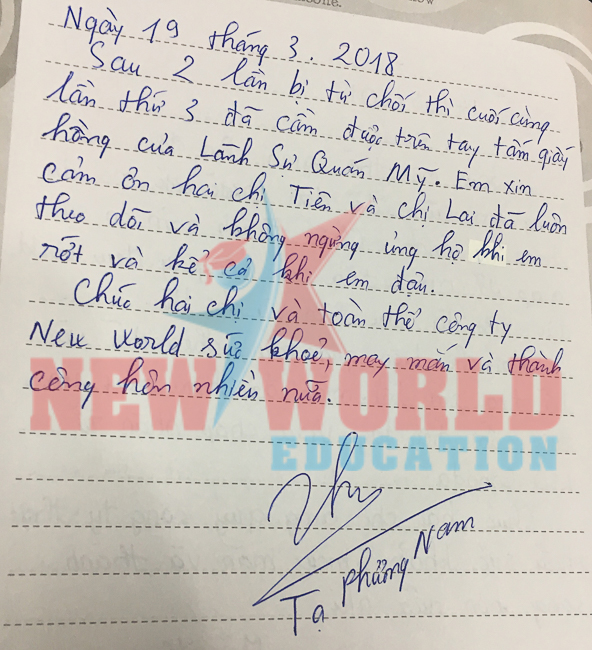 Ngày 19 tháng 3. 2018
Sau 2 lần bị từ chối thì cuối cùng
lần thứ 3 đã cầm được trên tay tấm giấy
hồng của Lãnh Sự Quán Mỹ. Em xin
cảm ơn hai chị Tiên và chị Lai đã luôn
theo dõi và không ngừng ủng hộ khi em
rớt và kể cả khi em đậu.
Chúc hai chị và toàn thể công ty
New World sức khoẻ, may mắn và thành
công hơn nhiều nữa.
NEW WORLD
EDUCATION
Tạ Phương Nam